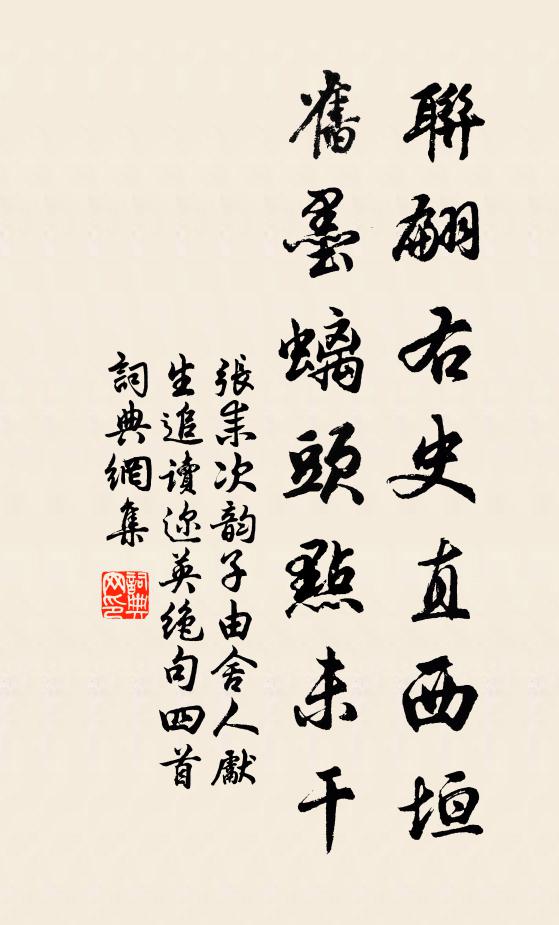 聯翩右史直西垣
舊墨螭頭點未干
張耒次韵子由舍人獻
生追讀迩英絶句四首
詞典網集
詞典网印